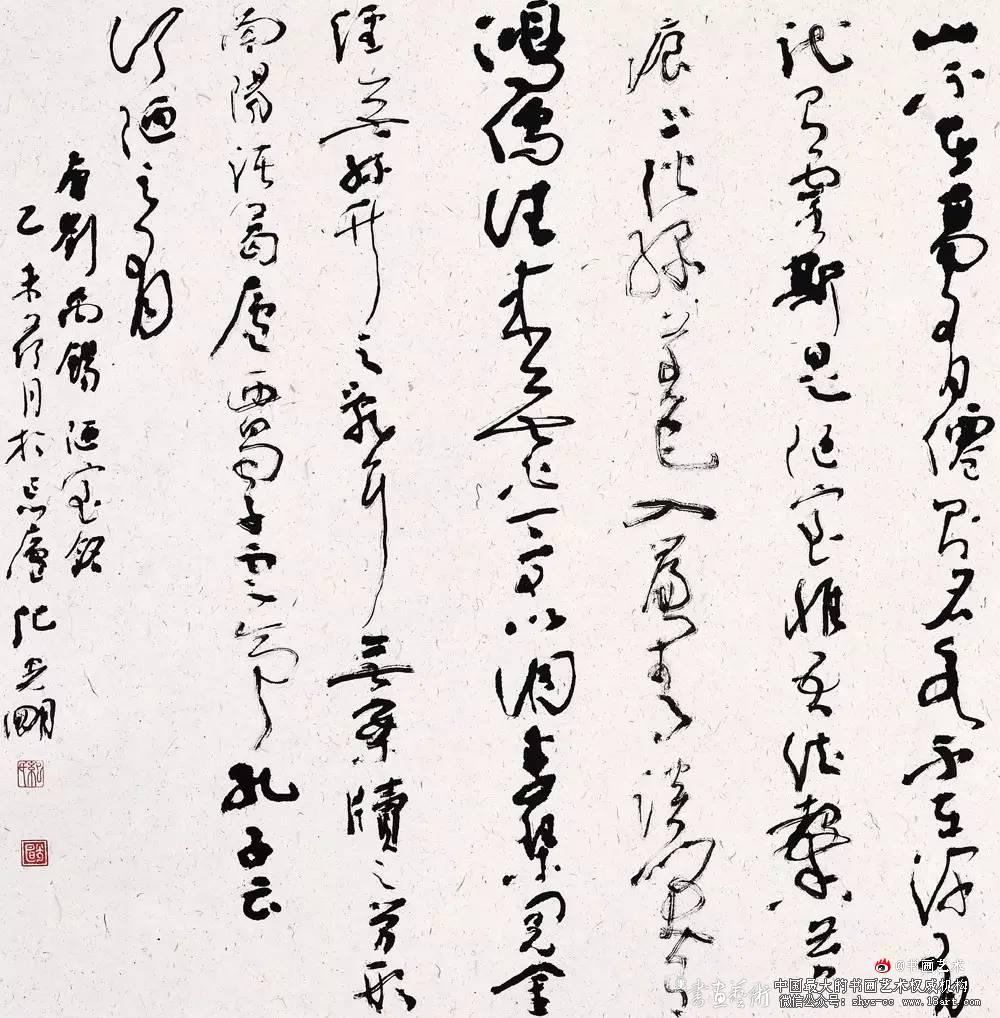 山不在高有僊則名水不在深有
龍則靈斯是陋室惟吾德馨苔
痕上階綠草色入簾青談笑有
鴻儒往來無白丁可以調素琴閱金
經無絲竹之亂耳無案牘之勞形
南陽諸葛廬西蜀子雲亭孔子云
何陋之有
右劉禹錫陋室銘
乙未荷月於忘廬紀光明
@书画艺术
書画藝術
中国最大的书画艺术权威
微信公众号: shys-cc www.18art.com